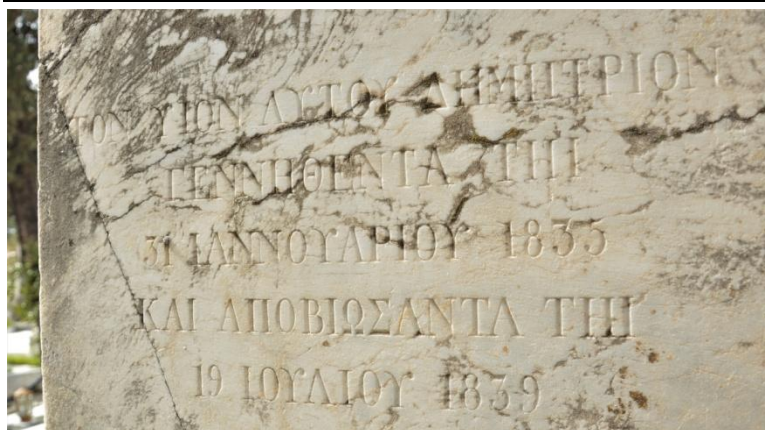 ΤΟΝ ΥΙΟΝ ΑΥΤΟΥ ΔΗΜΗΤΡΙΟΝ
ΓΕΝΝΗΘΕΝΤΑ ΤΗΙ
31 ΙΑΝΝΟΥΑΡΙΟΥ 1833
ΚΑΙ ΑΠΟΒΙΩΣΑΝΤΑ ΤΗΙ
19 ΙΟΥΛΙΟΥ 1839